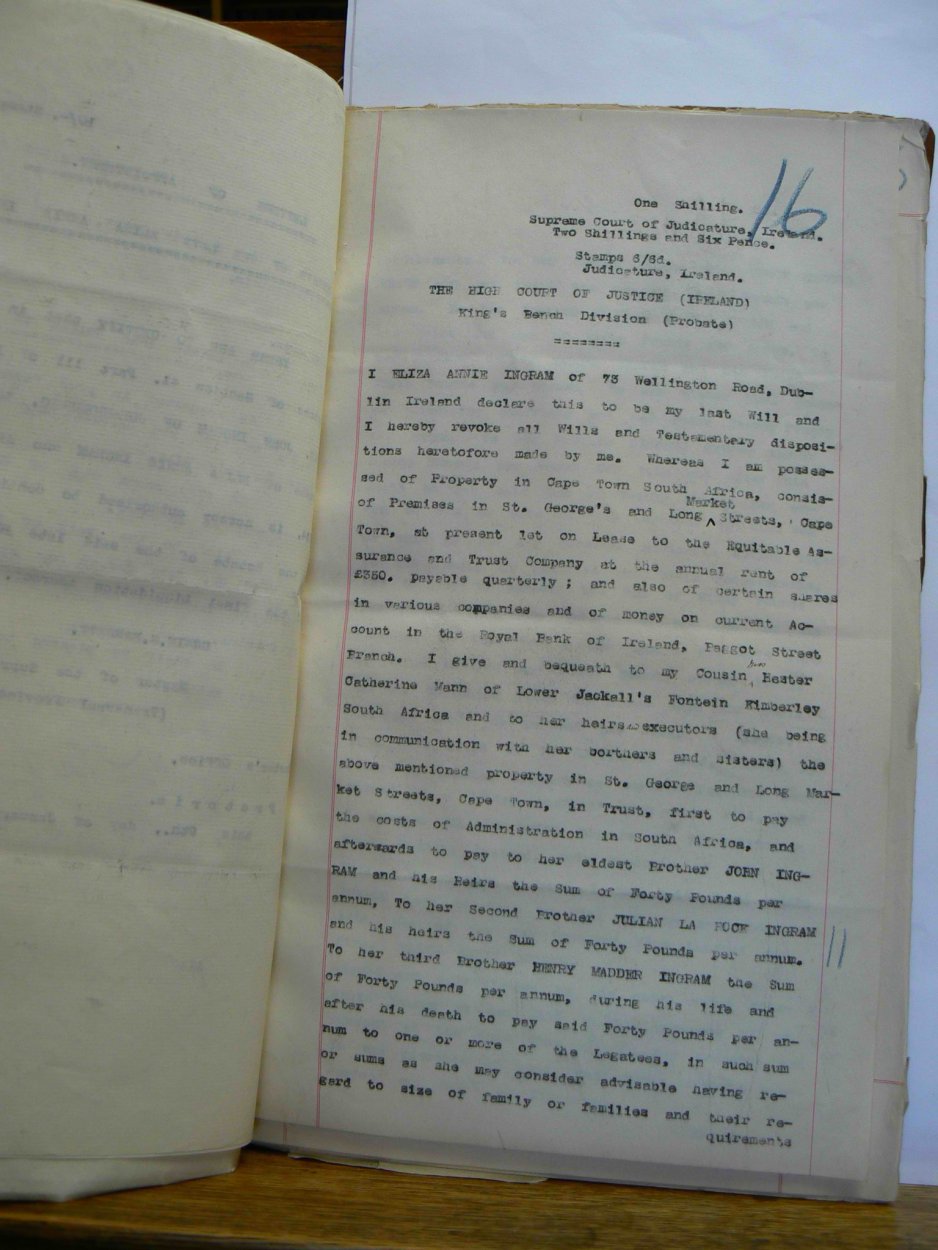 16
One Shilling.
Supreme Court of Judicature, Ireland.
Two Shillings and Six Pence.
Stamps 6/6d.
Judicature, Ireland.
THE HIGH COURT OF JUSTICE (IRELAND)
King's Bench Division (Probate)
========
I ELIZA ANNIE INGRAM of 73 Wellington Road, Dub-
lin Ireland declare this to be my last Will and
I hereby revoke all Wills and Testamentary disposi-
tions heretofore made by me. Whereas I am posses-
sed of Property in Cape Town South Africa, consis-
Market
of Premises in St. George's and Long ^ Streets, Cape
Town, at present let on Lease to the Equitable As-
surance and Trust Company at the annual rent of
£350. payable quarterly ; and also of certain shares
in various companies and of money on current Ac-
count in the Royal Bank of Ireland, Baggot Street
Branch. I give and bequeath to my Cousin, Hester
Catherine Mann of Lower Jackall's Fontein Kimberley
South Africa and to her heirs executors (she being
in communication with her borthers and sisters) the
above mentioned property in St. George and Long Mar-
ket Streets, Cape Town, in Trust, first to pay
the costs of Administration in South Africa, and
afterwards to pay to her eldest Brother JOHN ING-
RAM and his Heirs the Sum of Forty Pounds per
annum, To her Second Brother JULIAN LA ROCK INGRAM
and his heirs the Sum of Forty Pounds per annum.
To her third Brother HENRY MADDER INGRAM the Sum
of Forty Pounds per annum, during his life and
after his death to pay said Forty Pounds per an-
num to one or more of the Legatees, in such sum
or sums as she may consider advisable having re-
gard to size of family or families and their re-
quirements